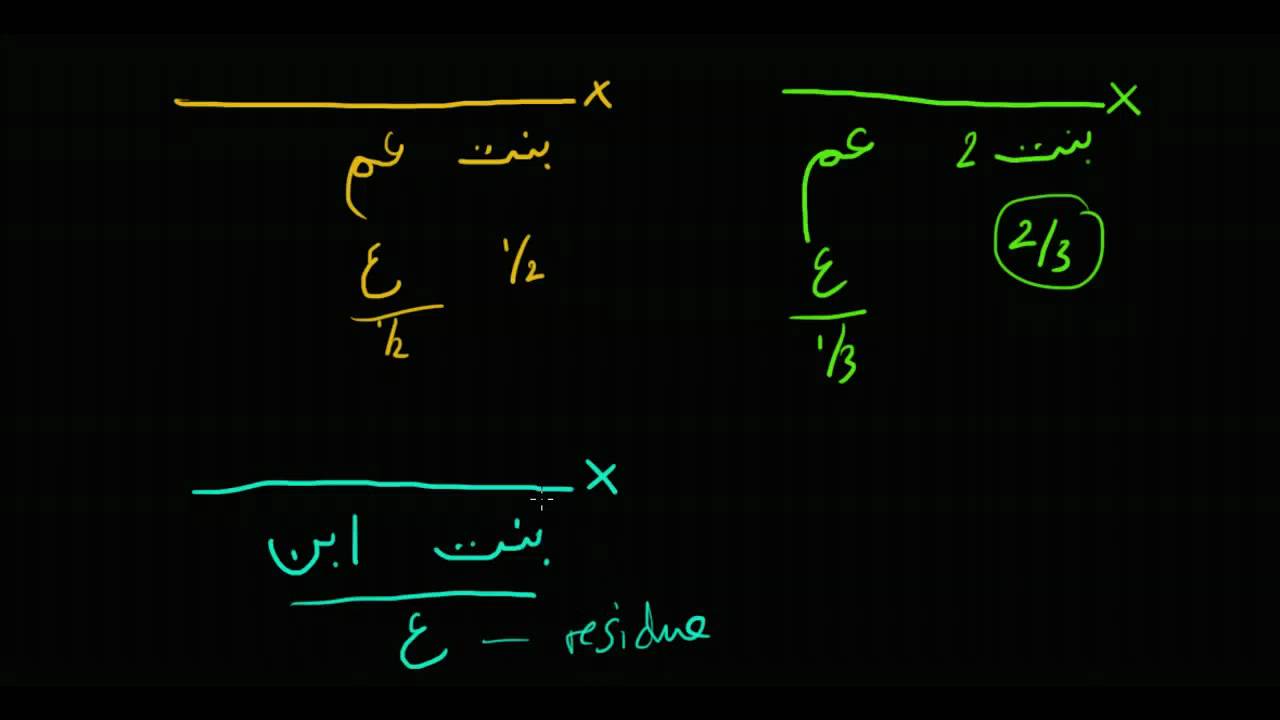 X
بنت عم
1/2 ع
1/2
X
بنت 2 عم
2/3 ع
1/3
X
بنت ابن
ع — residue